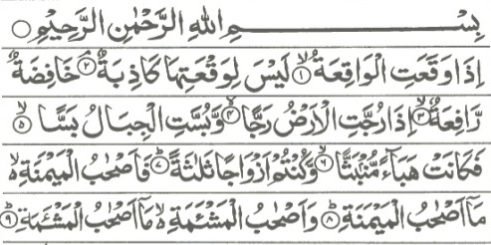 بِسْــــــــمِ اللهِ الرَّحْمٰنِ الرَّحِيْمِ ○
اِذَا وَقَعَتِ الْوَاقِعَةُ ۙ﴿۱﴾ لَيْسَ لِوَقْعَتِهَا كَاذِبَةٌ ۘ﴿۲﴾ خَافِضَةٌ
رَّافِعَةٌ ۙ﴿۳﴾ اِذَا رُجَّتِ الْاَرْضُ رَجًّا ۙ﴿۴﴾ وَّبُسَّتِ الْجِبَالُ بَسًّا ۙ﴿۵﴾
فَكَانَتْ هَبَآءً مُّنْۢبَثًّا ۙ﴿۶﴾ وَّكُنْتُمْ اَزْوَاجًا ثَلٰثَةً ؕ﴿۷﴾ فَاَصْحٰبُ الْمَيْمَنَةِ ۙ۬
مَاۤ اَصْحٰبُ الْمَيْمَنَةِ ؕ﴿۸﴾ وَاَصْحٰبُ الْمَشْـَٔمَةِ ۙ۬ مَاۤ اَصْحٰبُ الْمَشْـَٔمَةِ ؕ﴿۹﴾